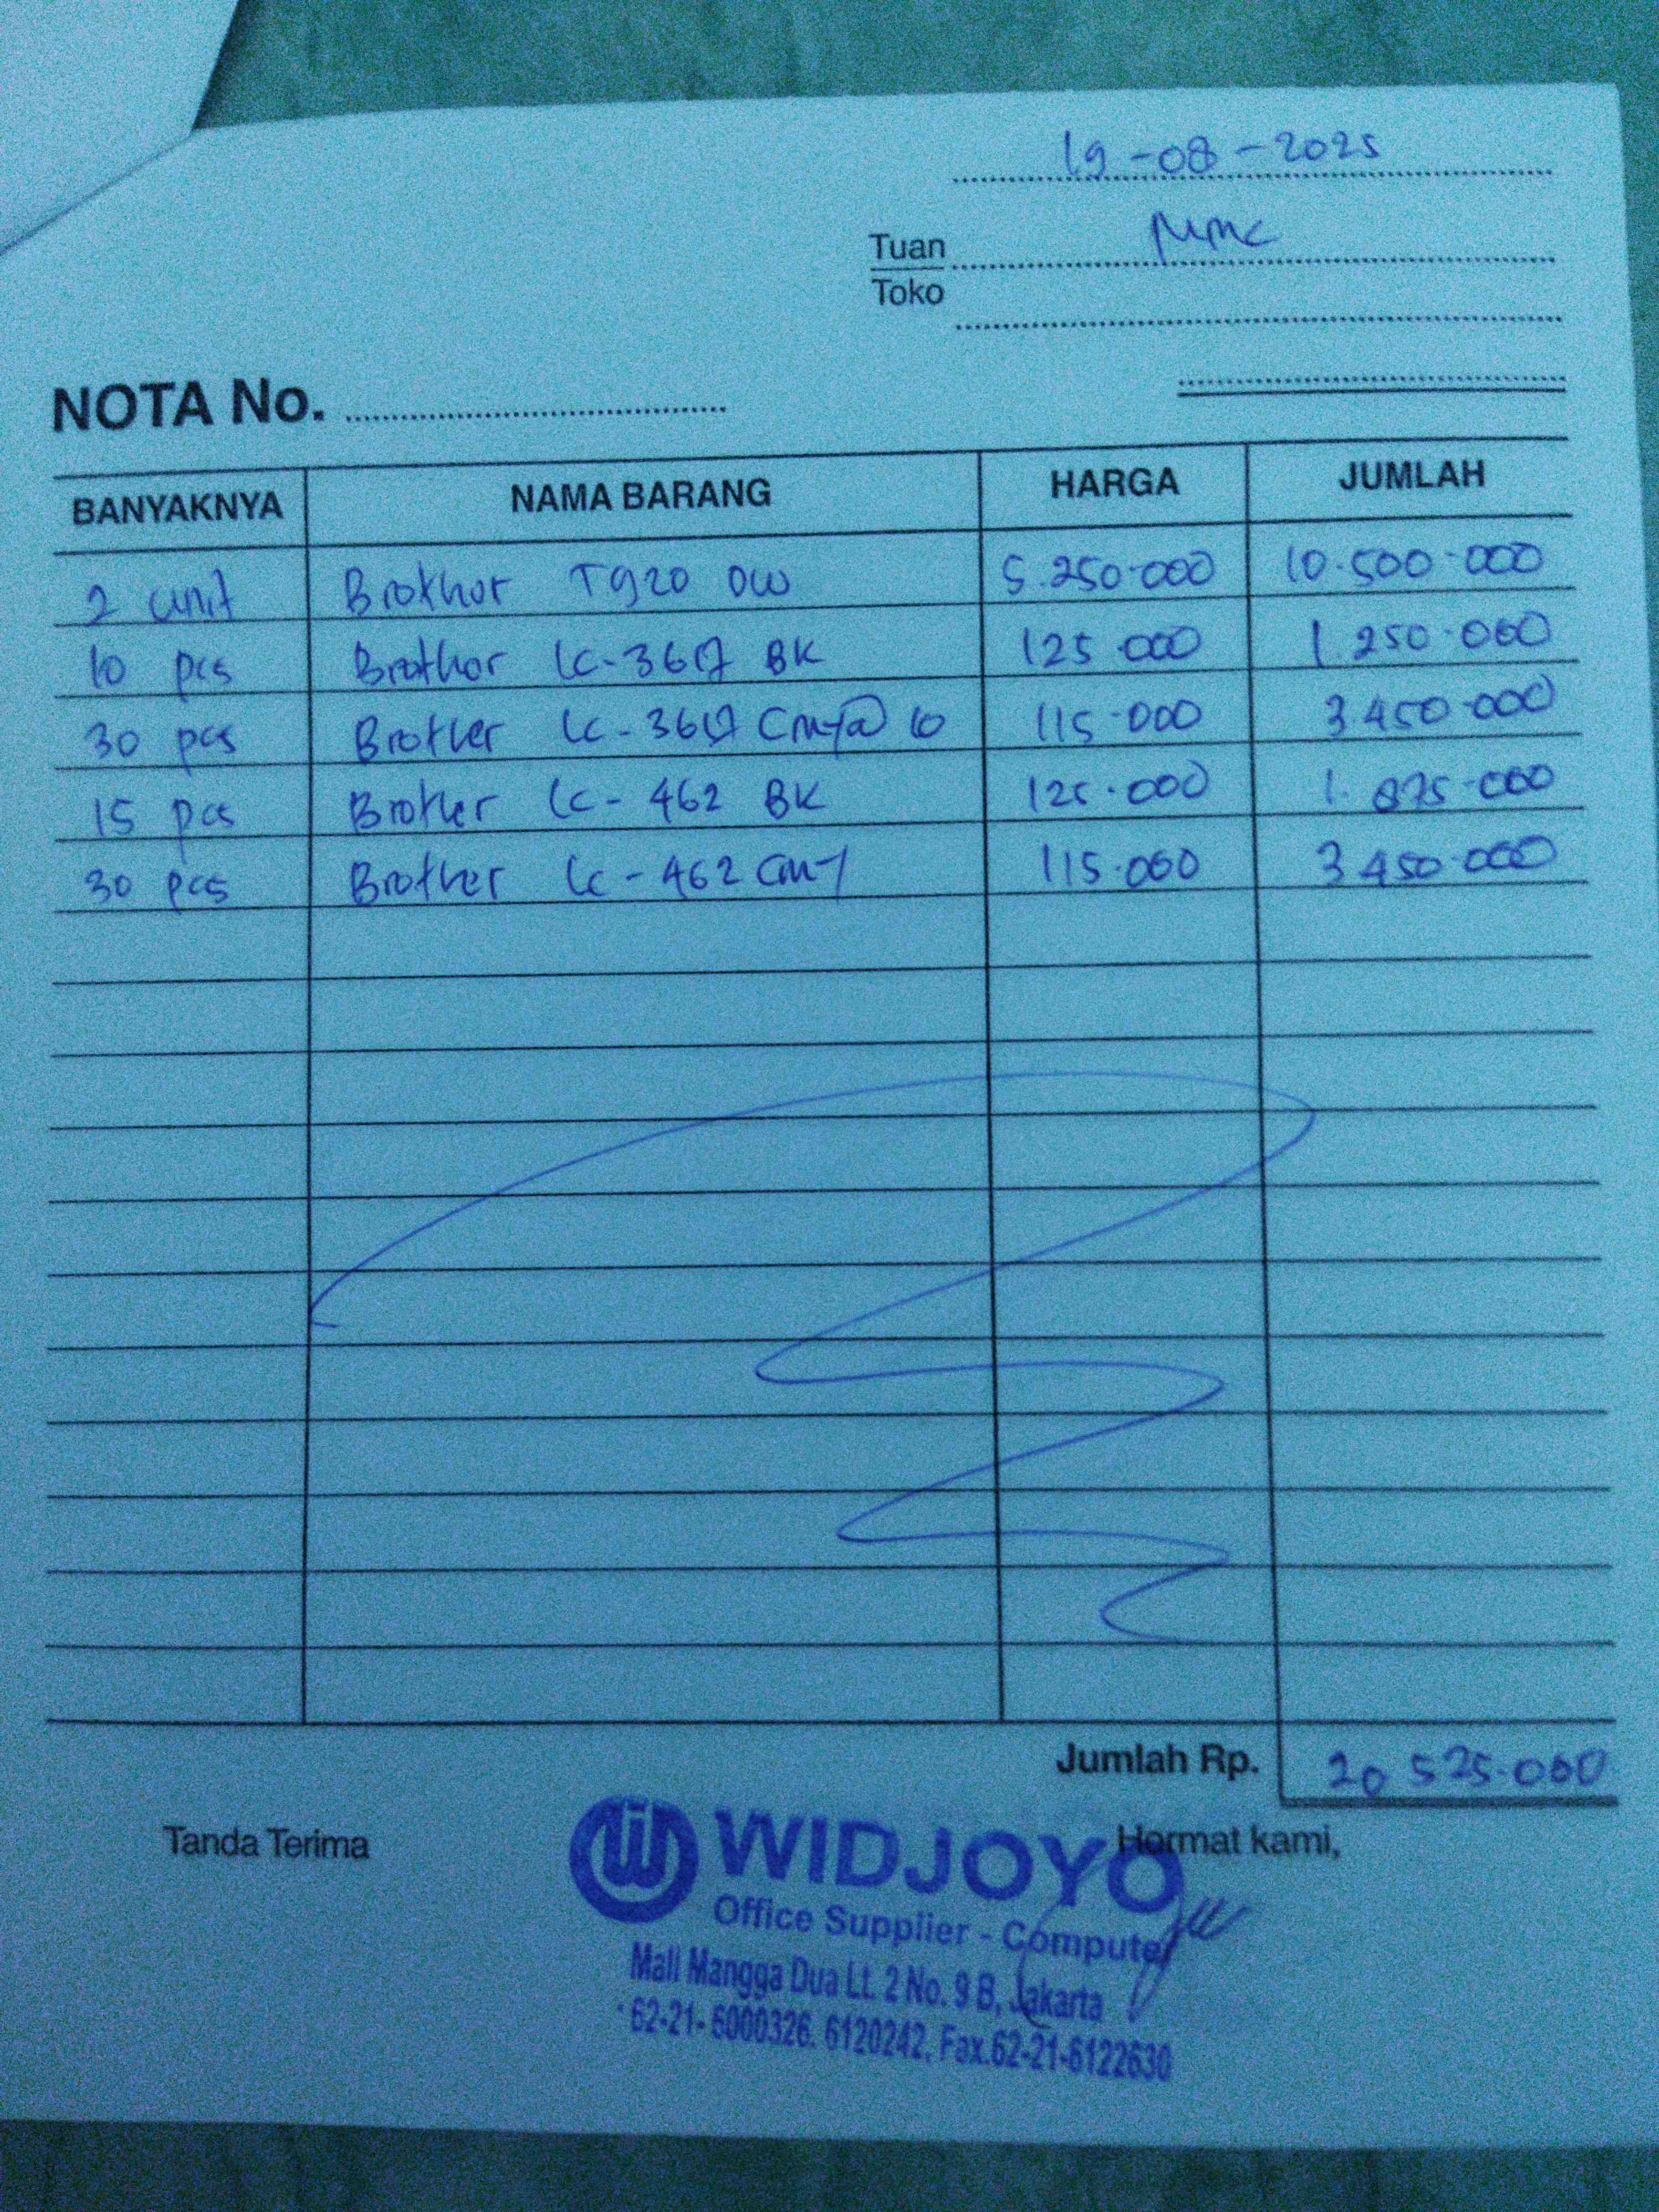 19-08-2025
Tuan MMC
Toko
NOTA No.
BANYAKNYA NAMA BARANG HARGA JUMLAH
2 unit Brother T920 DW 5.250.000 10.500.000
10 pcs Brother LC-3617 BK 125.000 1.250.000
30 pcs Brother LC-3617 CMY@ 10 115.000 3.450.000
15 pcs Brother LC-462 BK 125.000 1.875.000
30 pcs Brother LC-462 CMY 115.000 3.450.000
Jumlah Rp. 20.525.000
Tanda Terima Hormat kami,
WIDJOYO
Office Supplier - Computer
Mall Mangga Dua Lt. 2 No. 9 B, Jakarta
62-21- 6000326. 6120242, Fax.62-21-6122630